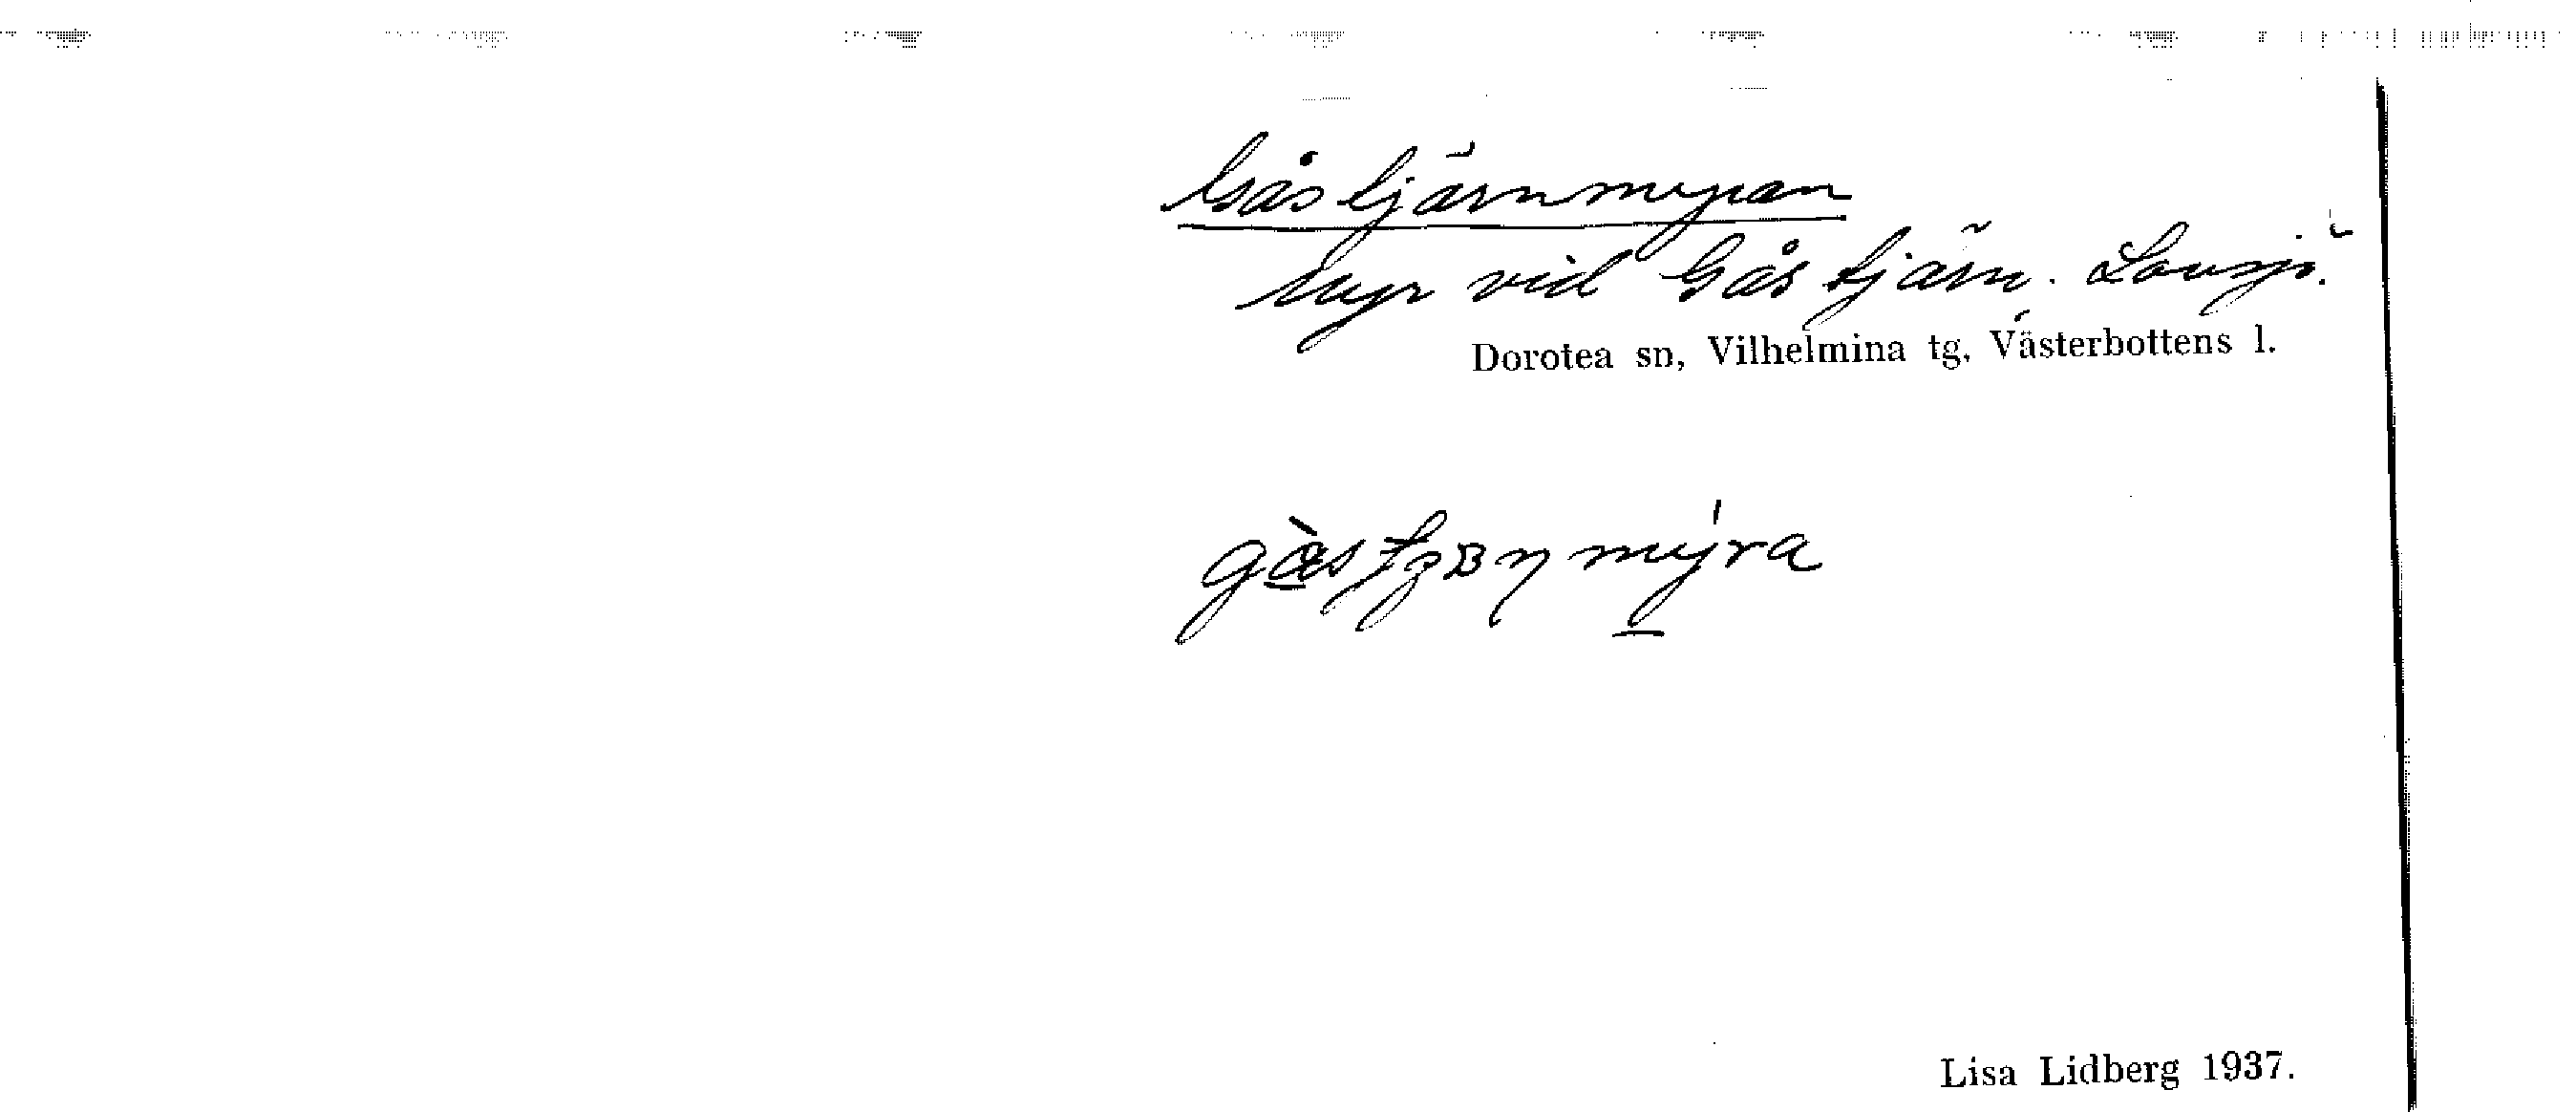 Gåstjärnmyran
Myr vid Gåstjärn. Lavsjö.
Dorotea sn, Vilhelmina tg, Västerbottens l.
Lisa Lidberg 1937.